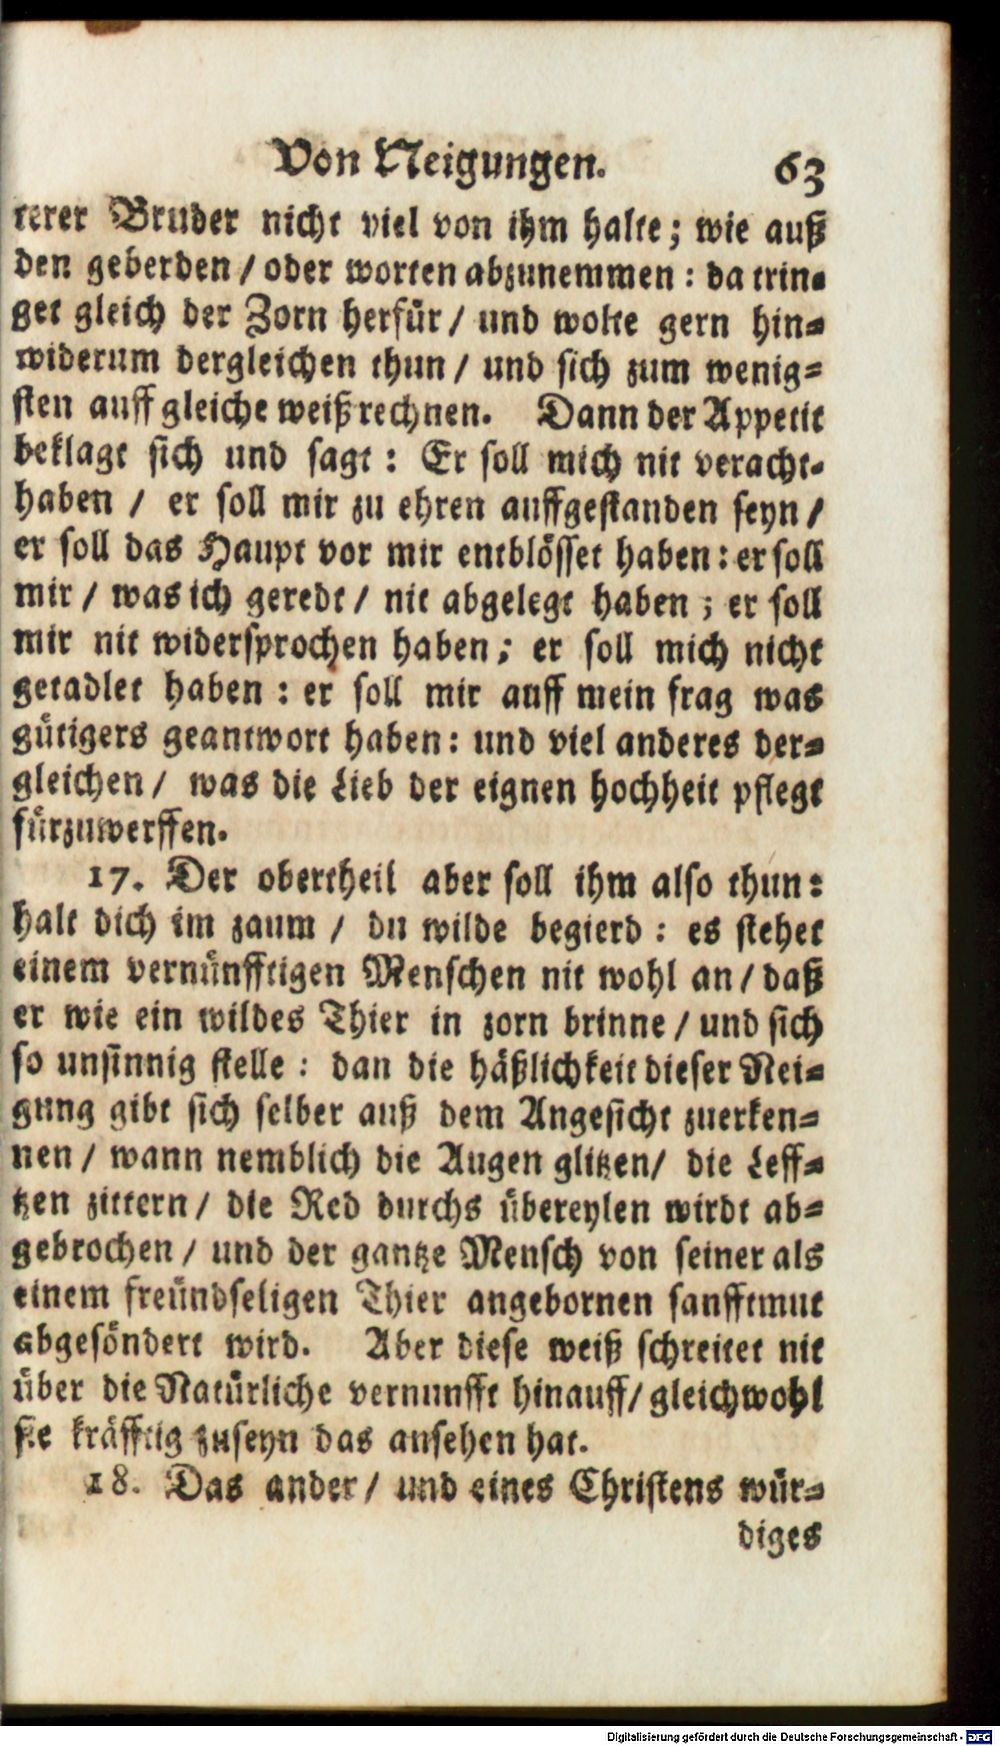 Von Neigungen. 63
terer Bruder nicht viel von ihm halte; wie auß
den geberden / oder worten abzunemmen: da trin-
get gleich der Zorn herfür / und wolte gern hin-
widerum dergleichen thun / und sich zum wenig-
sten auff gleiche weiß rechnen. Dann der Appetit
beklagt sich und sagt: Er soll mich nit veracht-
haben / er soll mir zu ehren auffgestanden seyn /
er soll das Haupt vor mir entblösset haben: er soll
mir / was ich geredt / nit abgelegt haben; er soll
mir nit widersprochen haben; er soll mich nicht
getadlet haben: er soll mir auff mein frag was
gütigers geantwort haben: und viel anderes der-
gleichen / was die Lieb der eignen hochheit pflegt
fürzuwerffen.
17. Der obertheil aber soll ihm also thun:
halt dich im zaum / du wilde begierd: es stehet
einem vernünfftigen Menschen nit wohl an / daß
er wie ein wildes Thier in zorn brinne / und sich
so unsinnig stelle: dan die häßlichkeit dieser Nei-
gung gibt sich selber auß dem Angesicht zuerken-
nen / wann nemblich die Augen glitzen / die Leff-
tzen zittern / die Red durchs übereylen wirdt ab-
gebrochen / und der gantze Mensch von seiner als
einem freündseligen Thier angebornen sanfftmut
abgesöndert wird. Aber diese weiß schreitet nit
über die Natürliche vernunfft hinauff / gleichwohl
sie kräfftig zuseyn das ansehen hat.
18. Das ander / und eines Christens wür-
diges
Digitalisierung gefördert durch die Deutsche Forschungsgemeinschaft - DFG